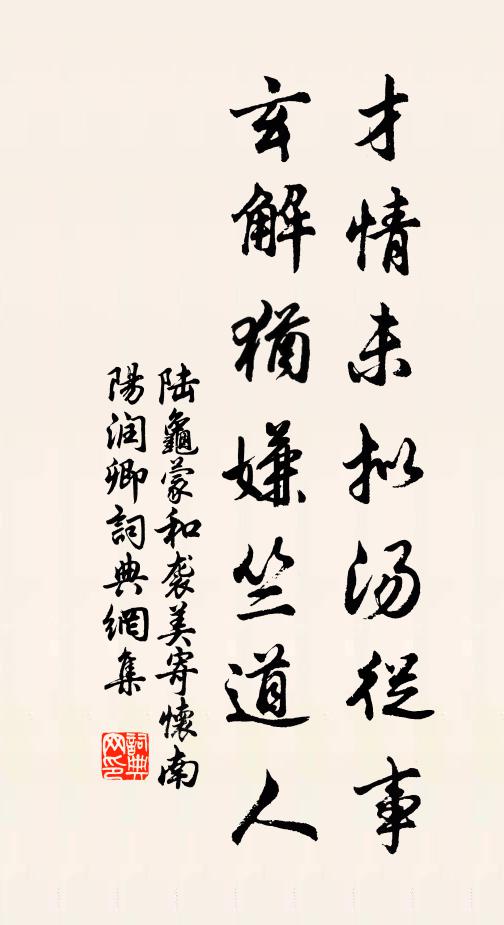 才情未拟汤從事
玄解猶嫌竺道人
陆龜蒙和袭美寄懷南
陽润卿詞典網集
詞典网印